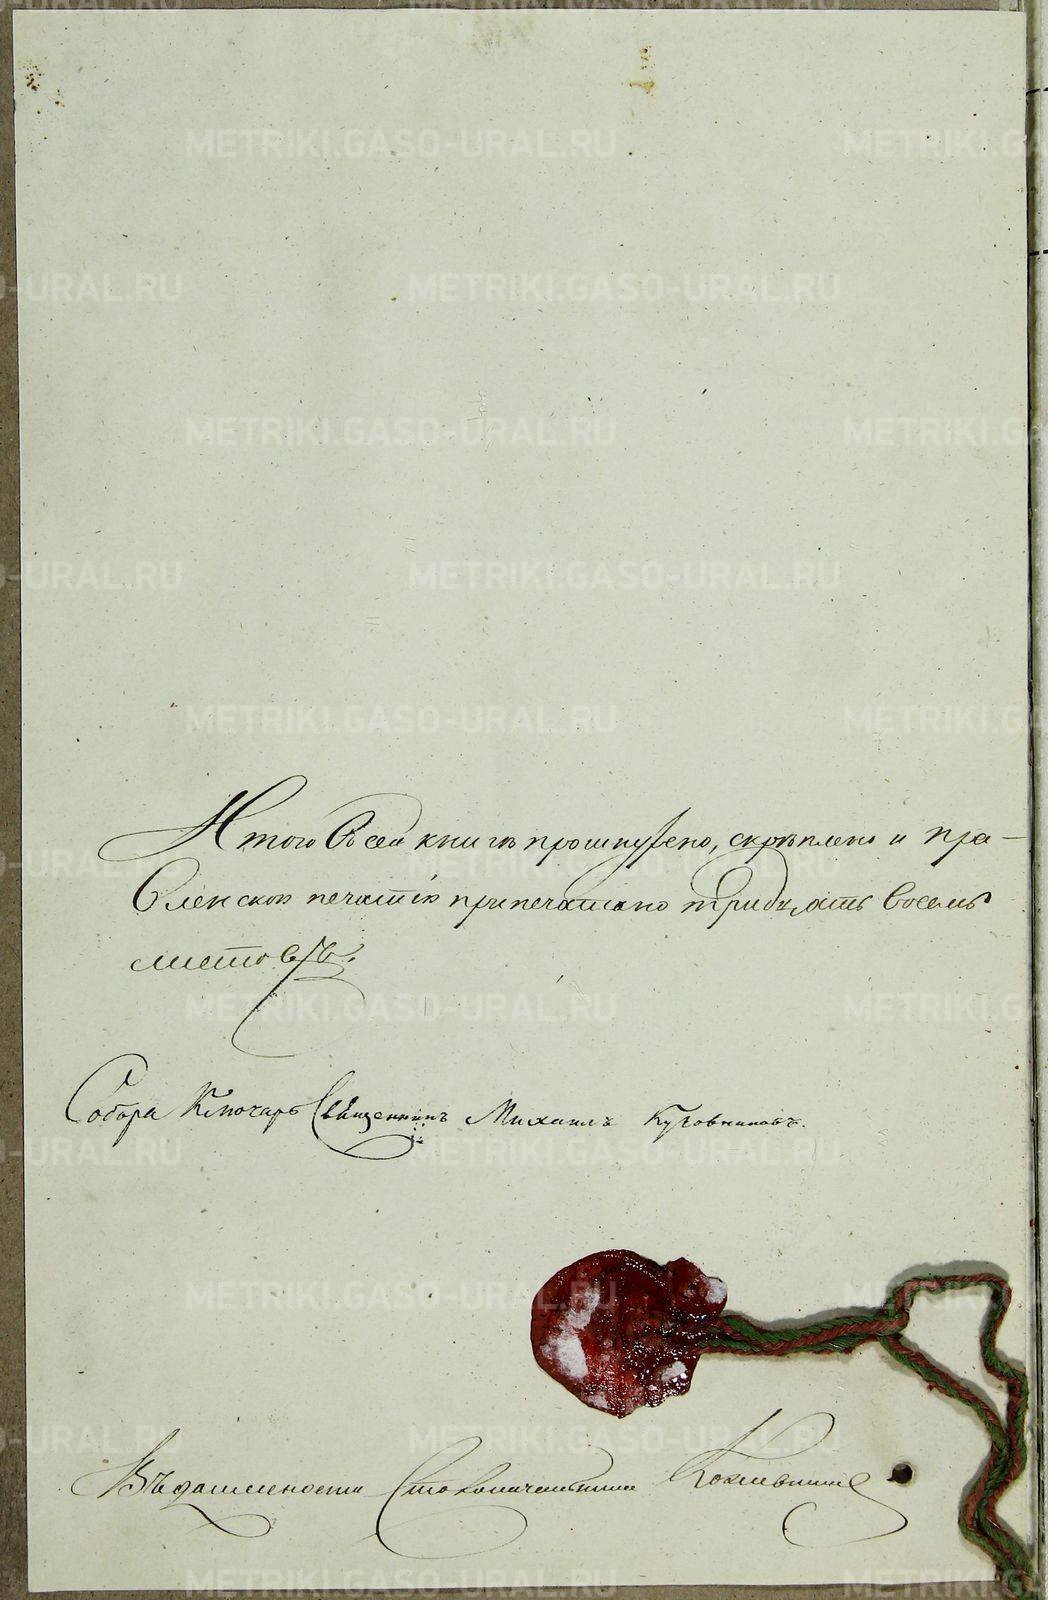 Итого въ сей книгѣ прошнурено, скрѣплено и пра-
вленскою печатію припечатано тридцать восемь
листовъ.
Собора Ключарь Священникъ Михаилъ Кутовниковъ.
Въ должности Столоначальника Кожевниковъ
METRIKI.GASO-URAL.RU